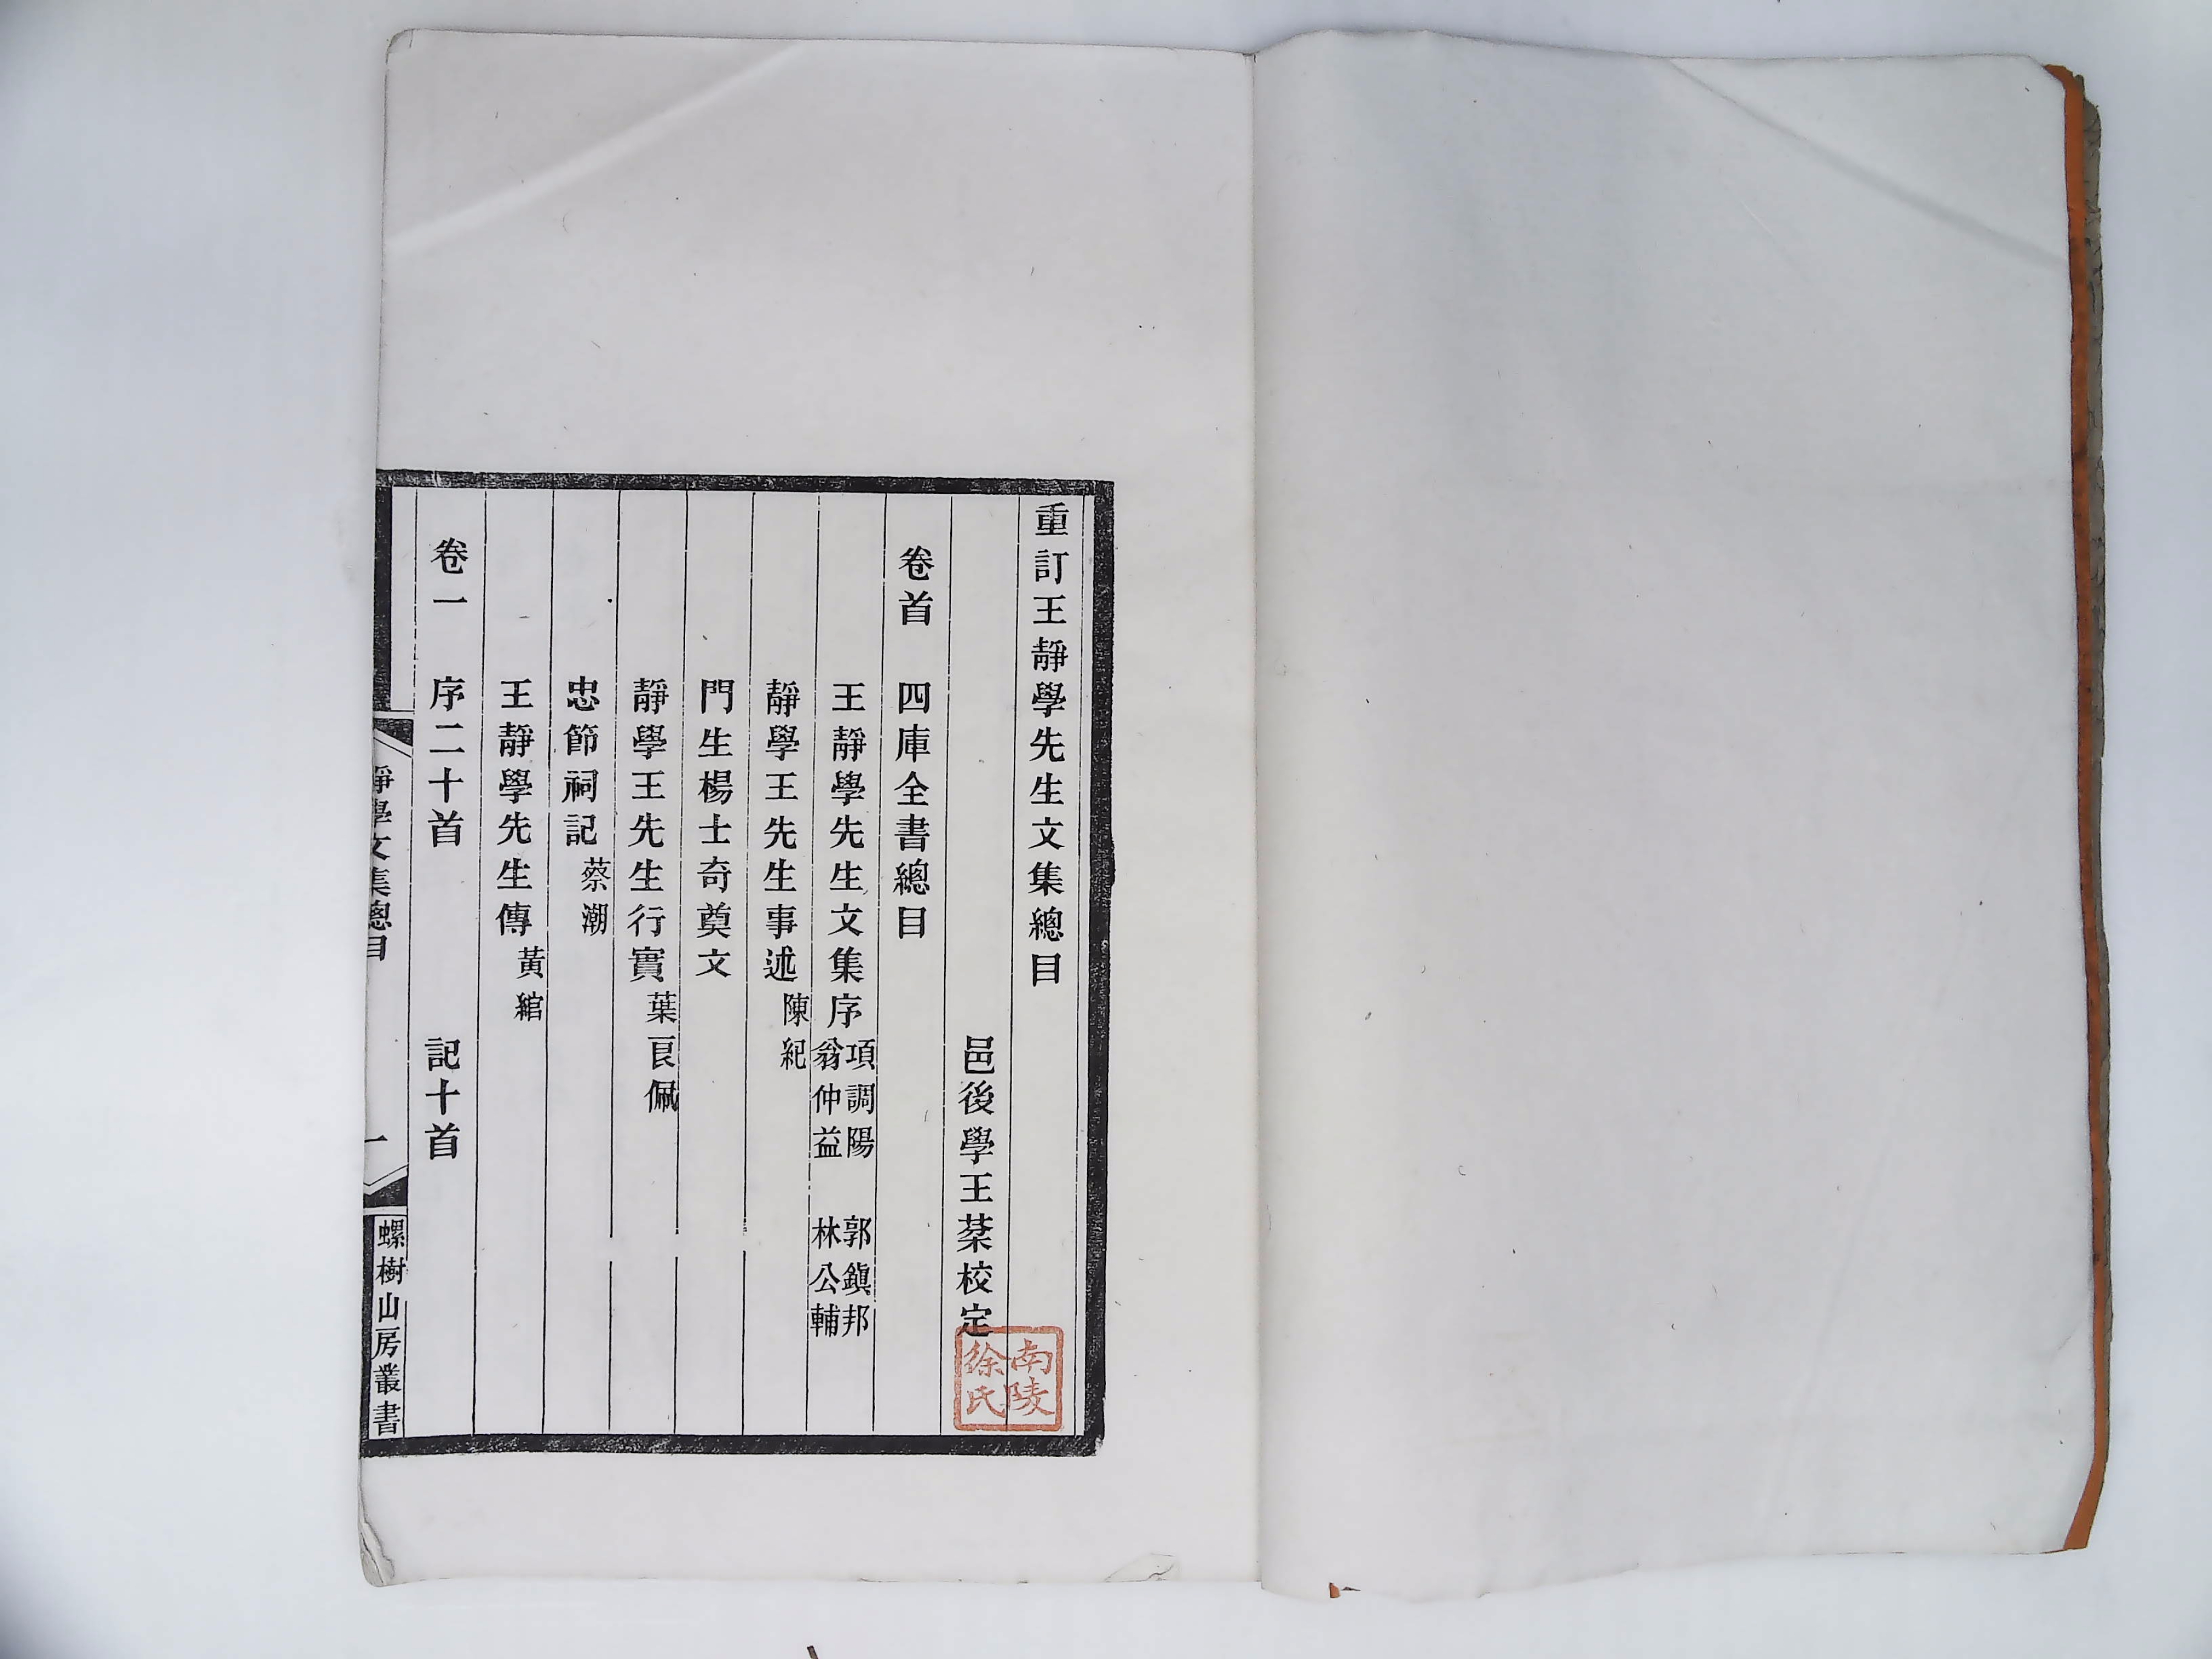 重訂王靜學先生文集總目
邑後學王棻校定
南陵
徐氏
卷首 四庫全書總目
王靜學先生文集序 項調陽 郭鎭邦
翁仲益 林公輔
靜學王先生事述 陳紀
門生楊士奇奠文
靜學王先生行實 葉良佩
忠節祠記 蔡潮
王靜學先生傳 黃綰
卷一 序二十首 記十首
靜學文集總目
一
螺樹山房叢書